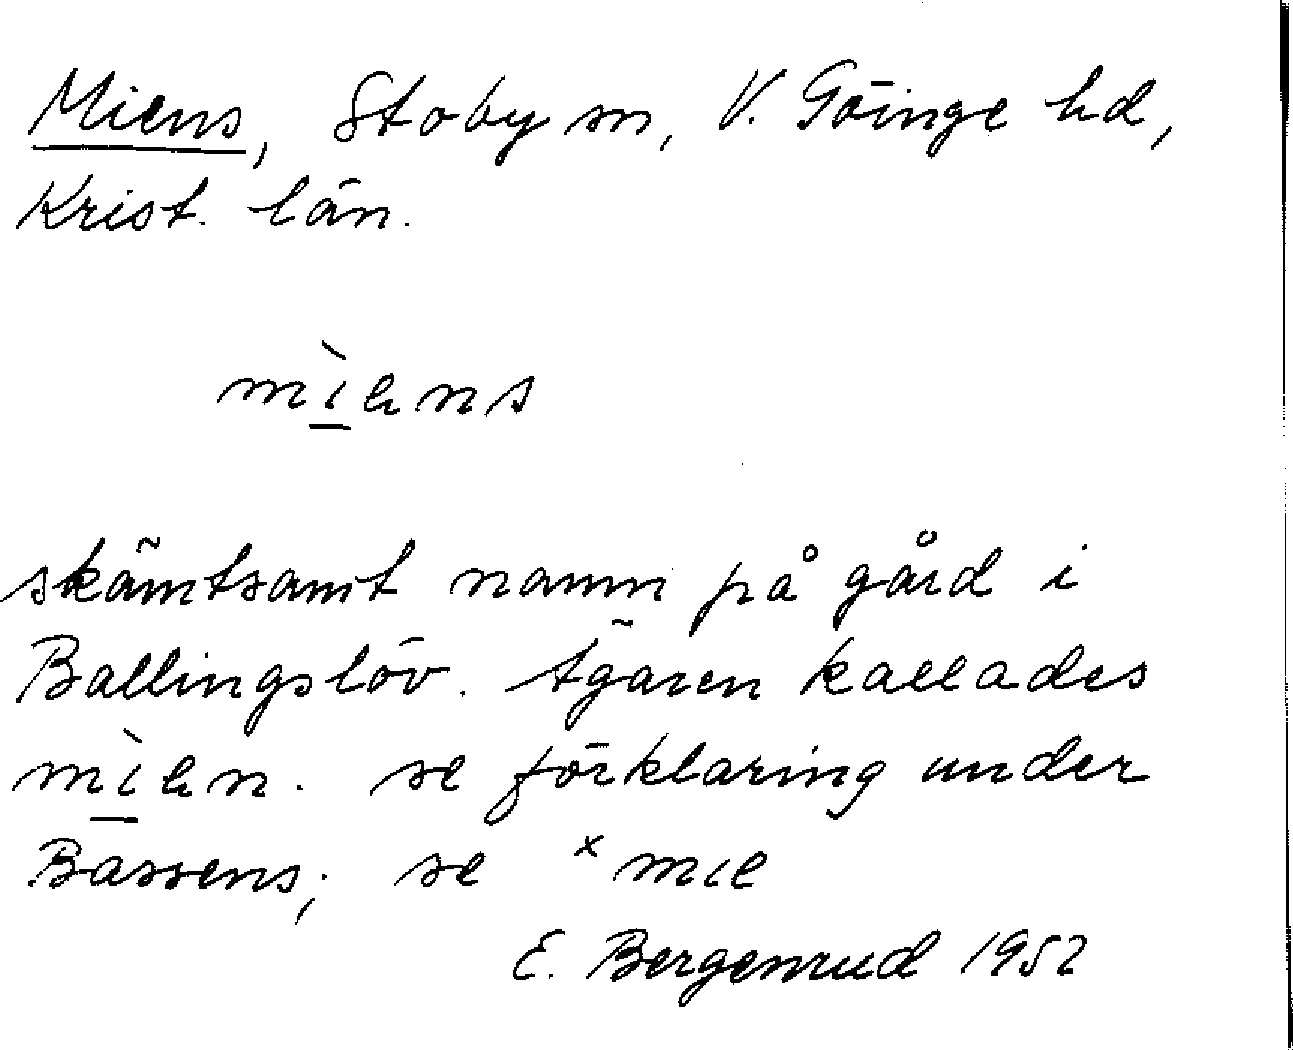 Miens, Stoby sn, V. Göinge hd,
Krist. län.
mìens
skämtsamt namn på gård i
Ballingslöv. Ägaren kallades
mìen. se förklaring under
Bassens; se × mie
E. Bergenrud 1952